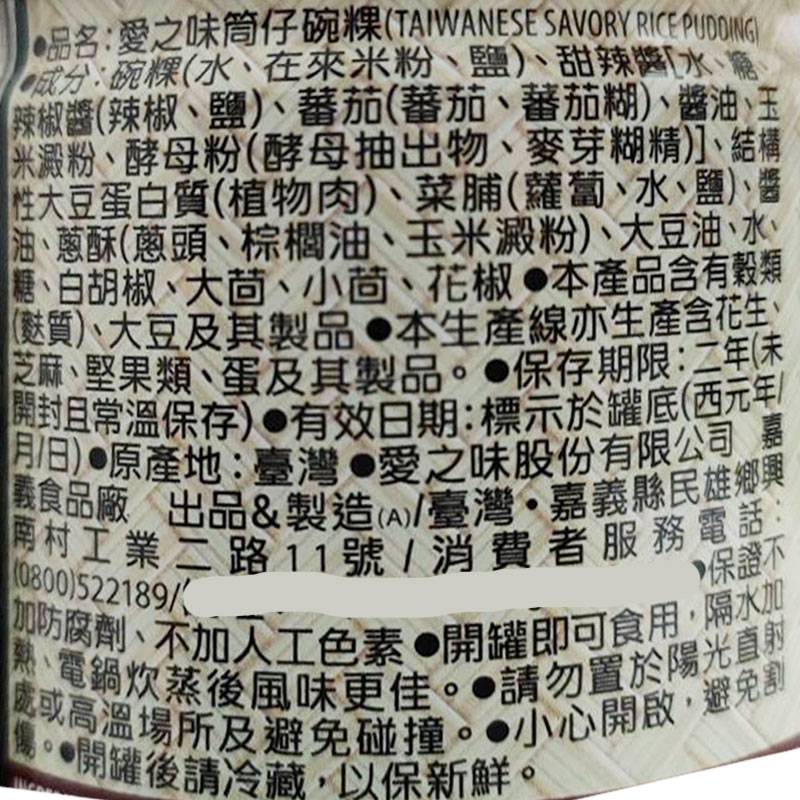 ●品名:愛之味筒仔碗粿(TAIWANESE SAVORY RICE PUDDING)
●成分:碗粿(水、在來米粉、鹽)、甜辣醬[水、糖、
辣椒醬(辣椒、鹽)、蕃茄(蕃茄、蕃茄糊)、醬油、玉
米澱粉、酵母粉(酵母抽出物、麥芽糊精)]、結構
性大豆蛋白質(植物肉)、菜脯(蘿蔔、水、鹽)、醬
油、蔥酥(蔥頭、棕櫚油、玉米澱粉)、大豆油、水、
糖、白胡椒、大茴、小茴、花椒 ●本產品含有穀類
(麩質)、大豆及其製品 ●本生產線亦生產含花生、
芝麻、堅果類、蛋及其製品。●保存期限:二年(未
開封且常溫保存)●有效日期:標示於罐底(西元年/
月/日)●原產地:臺灣 ●愛之味股份有限公司 嘉
義食品廠 出品&製造(A)/臺灣・嘉義縣民雄鄉興
南村工業二路11號/消費者服務電話:
(0800)522189/ ●保證不
加防腐劑、不加人工色素 ●開罐即可食用,隔水加
熱、電鍋炊蒸後風味更佳。●請勿置於陽光直射
處或高溫場所及避免碰撞。●小心開啟,避免割
傷。●開罐後請冷藏,以保新鮮。